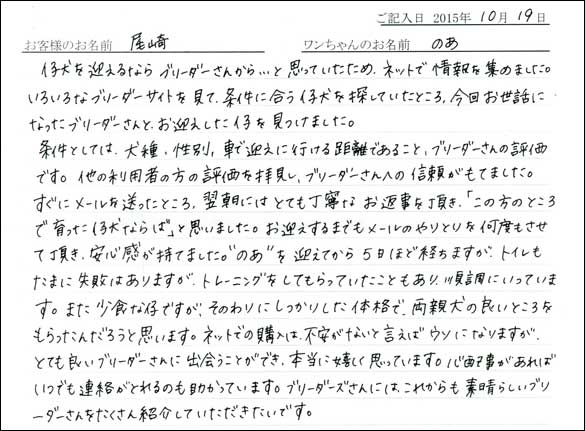 ご記入日 2015年10月19日
お客様のお名前 尾崎 ワンちゃんのお名前 のあ
仔犬を迎えるならブリーダーさんから…と思っていたため、ネットで情報を集めました。
いろいろなブリーダーサイトを見て、条件に合う仔犬を探していたところ、今回お世話に
なったブリーダーさんと、お迎えした仔を見つけました。
条件としては、犬種、性別、車で迎えに行ける距離であること、ブリーダーさんの評価
です。他の利用者の方の評価を拝見し、ブリーダーさんへの信頼がもてました。
すぐにメールを送ったところ、翌朝にはとても丁寧なお返事を頂き、「この方のところ
で育った仔犬ならば」と思いました。お迎えするまでもメールのやりとりを何度もさせ
て頂き、安心感が持てました。“のあ”を迎えてから5日ほど経ちますが、トイレも
たまに失敗はありますが、トレーニングをしてもらっていたこともあり、順調にいっていま
す。また少食な仔ですが、そのわりにしっかりした体格で、両親犬の良いところを
もらったんだろうと思います。ネットでの購入は、不安がないと言えばウソになりますが、
とても良いブリーダーさんに出会うことができ、本当に嬉しく思っています。心配事があれば
いつでも連絡がとれるのも助かっています。ブリーダーズさんには、これからも素晴らしいブリ
ーダーさんをたくさん紹介していただきたいです。